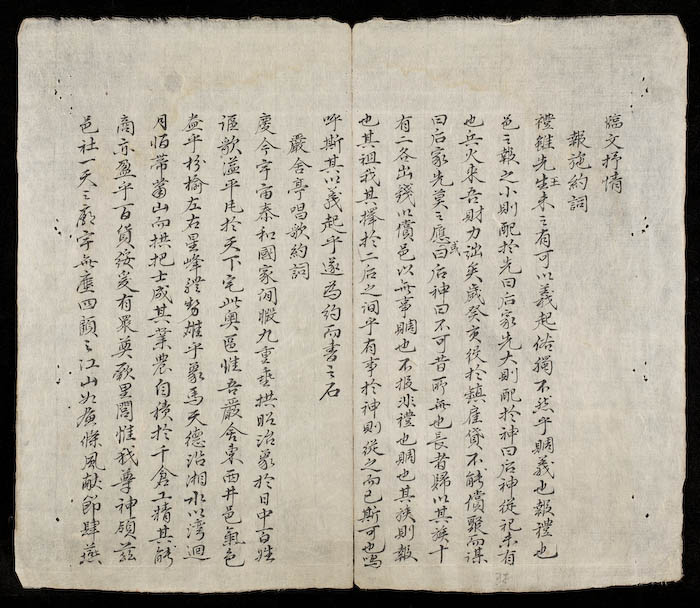 牖文抒情
報施約詞
禮雖先王未之有可以義起俗獨不然乎賙義也報禮也
邑之報之小則配於先曰后家先大則配於神曰后神從祀未有
也兵火來吾財力詘矣歲癸亥役於鎮崖貸不能償聚而謀
曰后家先莫之應或曰后神曰不可昔所無也長者歸以其族十
有二各出錢以償邑以無事賙也不报非禮也賙也其族則報
也其祖我其擇於二后之间乎有事於神則從之而已斯可也嗚
呼斯其以義起乎遂為約而書之石
嚴舍亭唱歌約詞
慶今宇宙泰和國家閒暇九重垂拱昭治象於日中百姓
謳歌溢乎風於天下宅此奧區惟吾嚴舍東西井邑氣色
盎乎枌榆左右星峰體勢雄乎象馬天德沿湘水以灣迴
月恒带當山而拱把士成其業農自積於千倉工精其能
商亦盈乎百貨綏爰有眾奠厥里閭惟我尊神領茲
邑社一天之廟宇無塵四顧之江山如畫條風献節肆燕